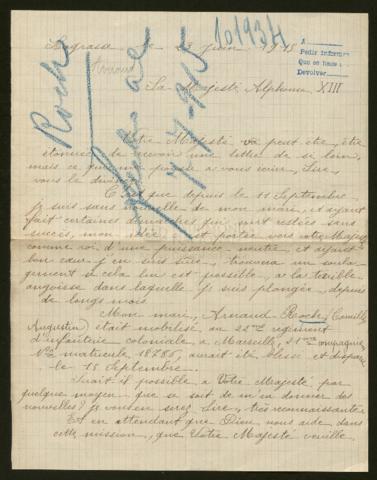 101934
A
Pedir informes
Que se hace
Devolver
Roch
Lagrasse le 23 juin 1915
Sa Majesté Alphonse XIII
Votre Majesté va peut être, être
étonnée de recevoir une lettre de si loin,
mais ce qui me pousse à vous écrire, Sire,
vous le
C'est que depuis le 11 Septembre
je suis sans nouvelle de mon mari, et ayant
fait certaines démarches qui sont restées sans
succès, mon idée est portée vers votre Majesté
comme roi d'une puissance neutre et ayant
bon cœur j'en suis sûre, trouvera un soula-
gement si cela lui est possible, à la terrible
angoisse dans laquelle je suis plongée, depuis
de longs mois
Mon mari, Arnaud Roch, (Camille
Augustin) était mobilisé au 22me régiment
d'infanterie coloniale, à Marseille, 21me compagnie
No matricule 18286, aurait été blessé et disparu
le 15 Septembre.
Serait-il possible à Votre Majesté, par
quelque moyen que ce soit de m'en donner des
nouvelles? je vous en serez, Sire, très reconnaissante
Et en attendant que Dieu vous aide dans
cette mission, que Votre Majesté veuille